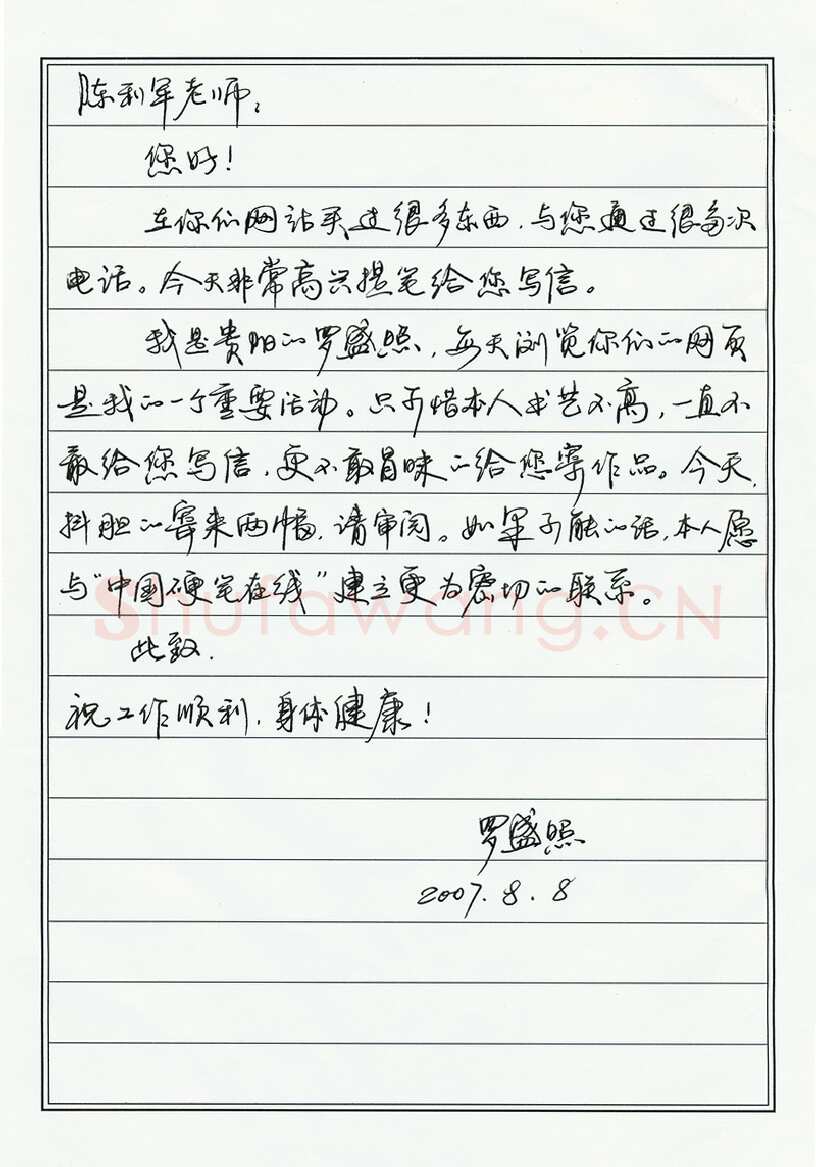 陈利军老师：
您好！
在你们网站买过很多东西，与您通过很多次
电话。今天非常高兴提笔给您写信。
我是贵阳的罗盛照，每天浏览你们的网页
是我的一个重要活动。只可惜本人书艺不高，一直不
敢给您写信，更不敢冒昧的给您寄作品。今天，
抖胆的寄来两幅，请审阅。如果可能的话，本人愿
与“中国硬笔在线”建立更为密切的联系。
Shufawang.CN
此致．
祝工作顺利，身体健康！
罗盛照
2007.8.8